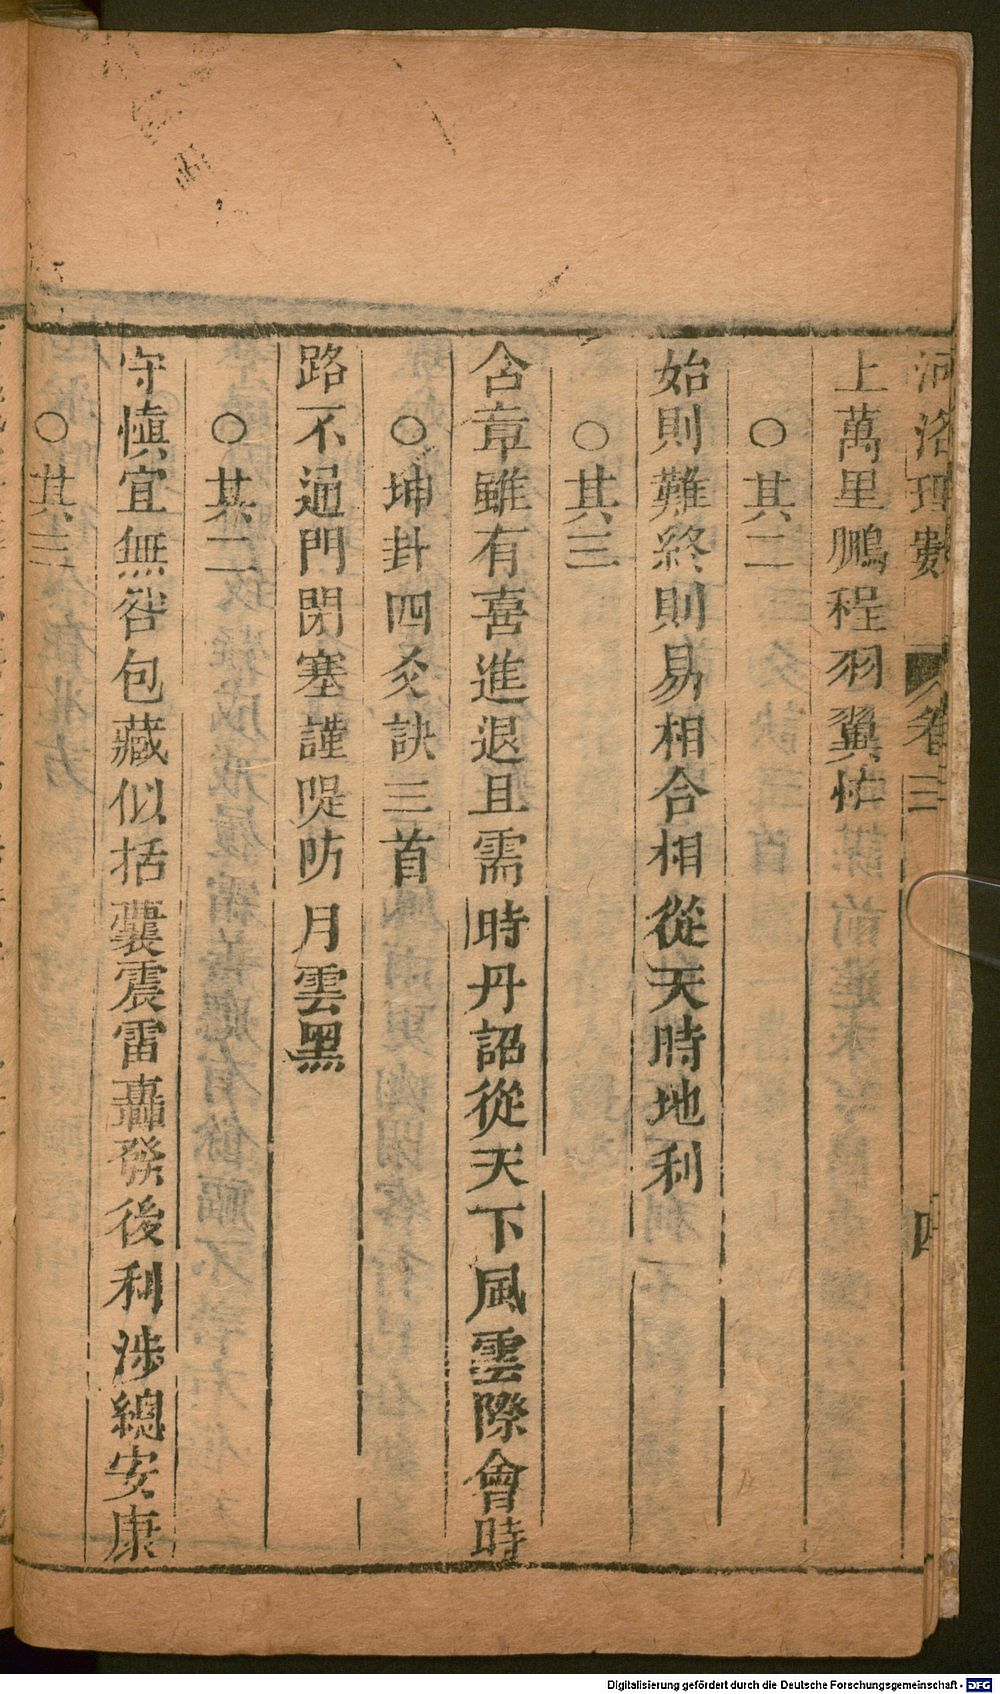 河洛理數 卷三 四
上萬里鵬程羽翼忙
○其二
始則難終則易相合相從天時地利
○其三
含章雖有喜進退且需時丹詔從天下風雲際會時
○坤卦四爻訣三首
路不通門閉塞謹隄防月雲黑
○其二
守慎宜無咎包藏似括囊震雷轟發後利涉總安康
○其三
Digitalisierung gefördert durch die Deutsche Forschungsgemeinschaft - DFG